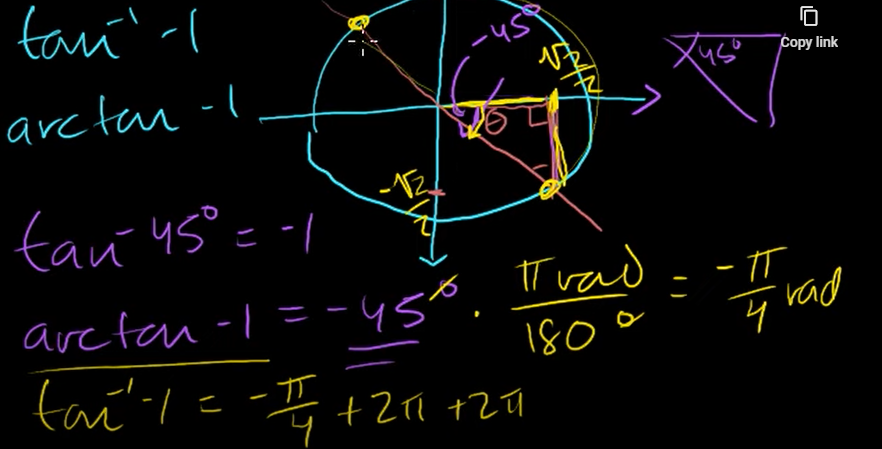 tan⁻¹ -1
arctan -1
-45°
√2/2
θ
-√2/2
45°
Copy link
tan -45° = -1
arctan -1 = -45° · π rad / 180° = -π/4 rad
tan⁻¹ -1 = -π/4 + 2π + 2π